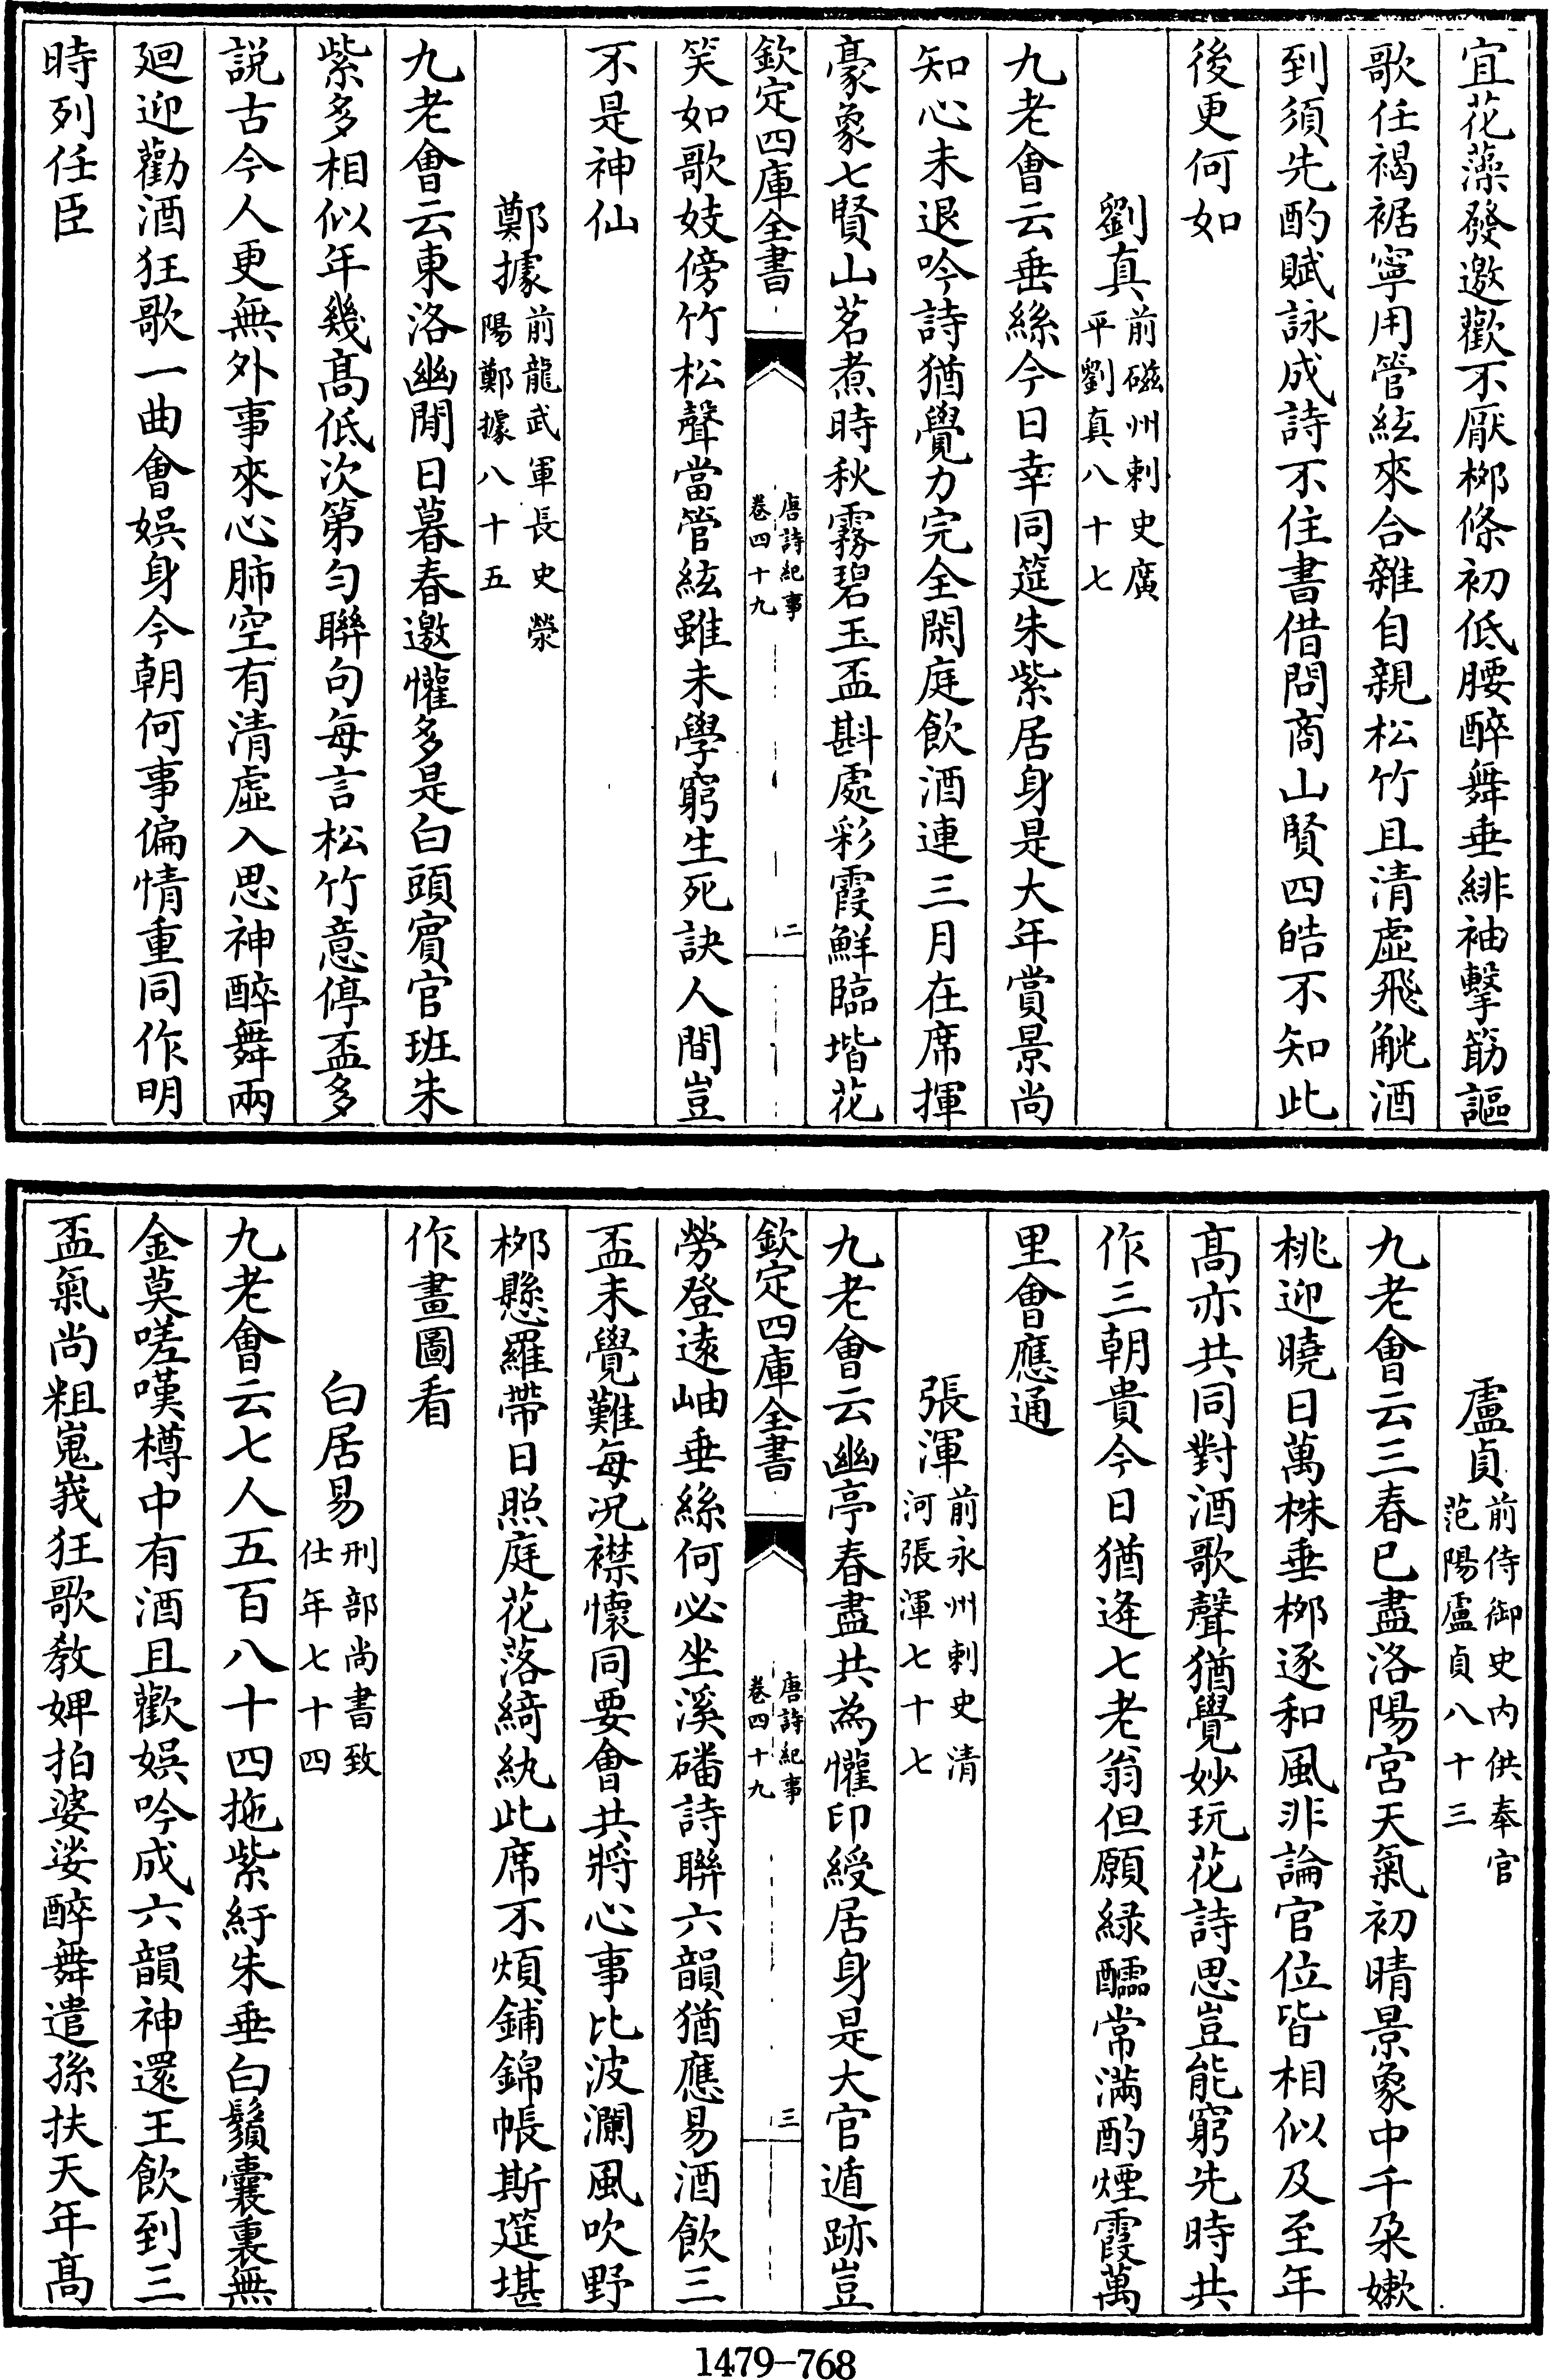 宜花藻發邀歡不厭栁條初低腰醉舞垂緋袖擊筯謳
歌任褐裾寧用管絃來合雜自親松竹且清虛飛觥酒
到須先酌賦詠成詩不住書借問商山賢四皓不知此
後更何如
劉真前磁州刺史廣
平劉真八十七
九老會云垂絲今日幸同筵朱紫居身是大年賞景尚
知心未退吟詩猶覺力完全閑庭飲酒連三月在席揮
豪象七賢山茗煮時秋霧碧玉盃斟處彩霞鮮臨堦花
欽定四庫全書
唐詩紀事
卷四十九
二
笑如歌妓傍竹松聲當管絃雖未學窮生死訣人間豈
不是神仙
鄭據前龍武軍長史滎
陽鄭據八十五
九老會云東洛幽閒日暮春邀懽多是白頭賓官班朱
紫多相似年幾髙低次第匀聯句每言松竹意停盃多
説古今人更無外事來心肺空有清虛入思神醉舞兩
廻迎勸酒狂歌一曲會娛身今朝何事偏情重同作明
時列任臣
盧貞前侍御史內供奉官
范陽盧貞八十三
九老會云三春已盡洛陽宮天氣初晴景象中千朶嫰
桃迎曉日萬株垂栁逐和風非論官位皆相似及至年
髙亦共同對酒歌聲猶覺妙玩花詩思豈能窮先時共
作三朝貴今日猶逢七老翁但願緑醽常滿酌煙霞萬
里會應通
張渾前永州刺史清
河張渾七十七
九老會云幽亭春盡共為懽印綬居身是大官遁跡豈
欽定四庫全書
唐詩紀事
卷四十九
三
勞登逺岫垂絲何必坐溪磻詩聯六韻猶應易酒飲三
盃未覺難每況襟懷同要會共將心事比波瀾風吹野
栁懸羅帶日照庭花落綺紈此席不煩鋪錦帳斯筵堪
作畫圖看
白居易刑部尚書致
仕年七十四
九老會云七人五百八十四拖紫紆朱垂白鬚囊裏無
金莫嗟嘆樽中有酒且歡娛吟成六韻神還王飲到三
盃氣尚粗嵬峩狂歌教婢拍婆娑醉舞遣孫扶天年髙
1479-768